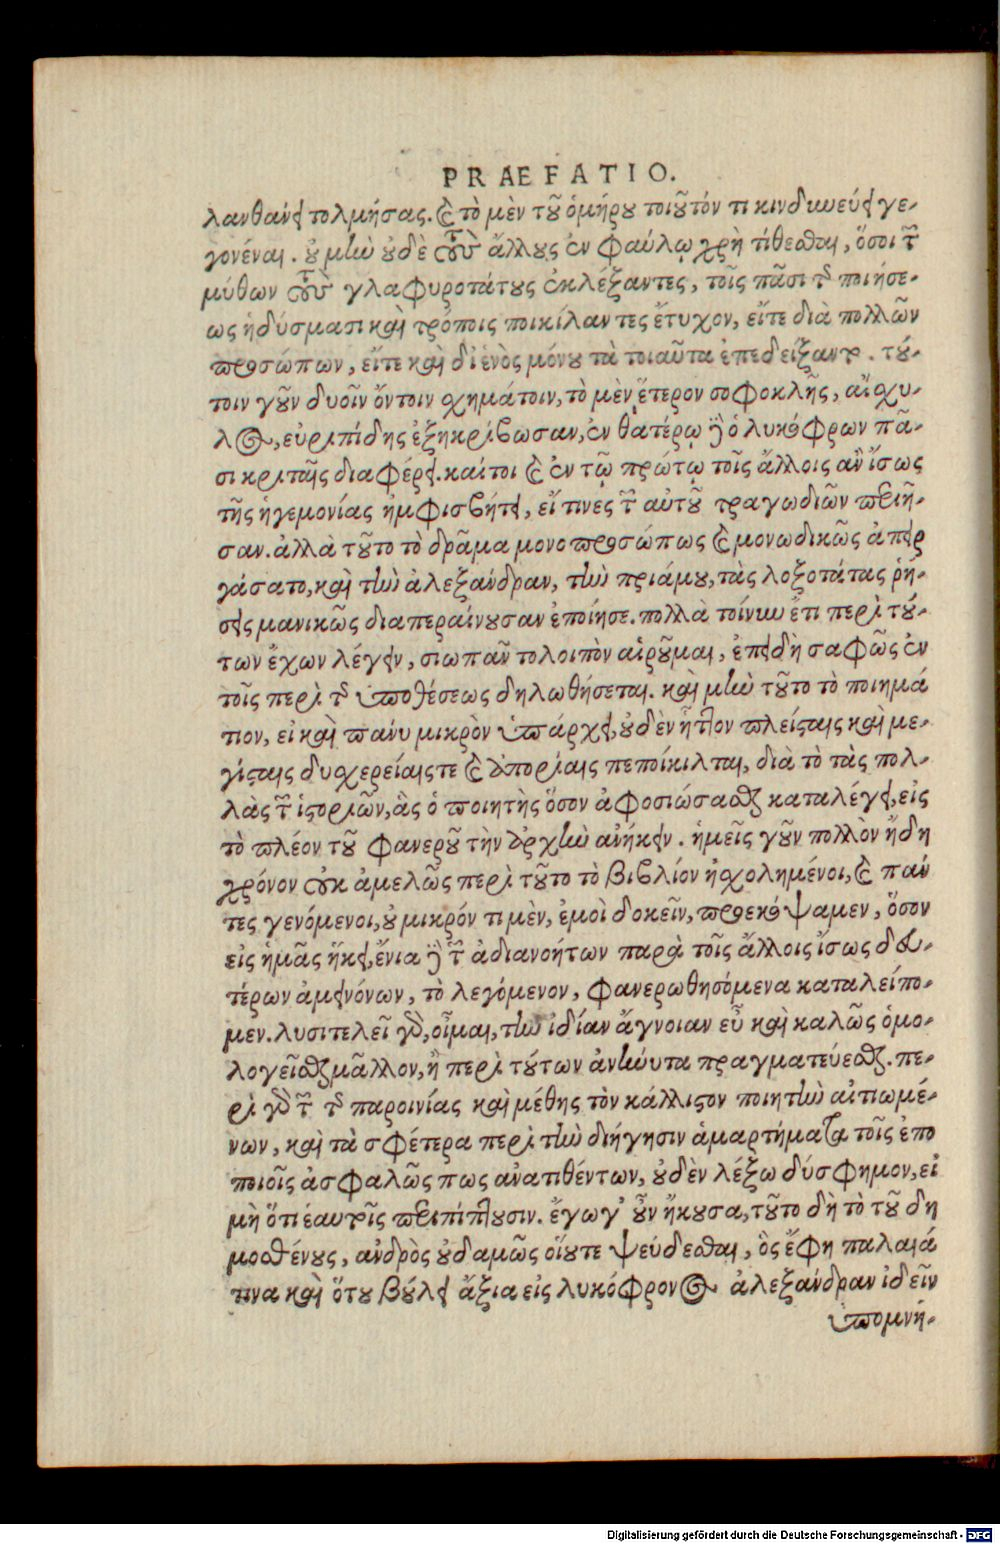 PRAEFATIO.
λανθάνει τολμήσας. καὶ τὸ μὲν τοῦ ὁμήρου τοιοῦτόν τι κινδυνεύει γε-
γονέναι. οὐ μὴν οὐδὲ τοὺς ἄλλους ἐν φαύλῳ χρὴ τίθεσθαι, ὅσοι τῶν
μύθων τοὺς γλαφυροτάτους ἐκλέξαντες, τοῖς πᾶσι τῆς ποιήσε-
ως ἡδύσμασι καὶ τρόποις ποικίλαντες ἔτυχον, εἴτε διὰ πολλῶν
προσώπων, εἴτε καὶ δι ἑνὸς μόνου τὰ τοιαῦτα ἐπεδείξαντο. τού-
τοιν γοῦν δυοῖν ὄντοιν σχημάτοιν, τὸ μὲν ἕτερον σοφοκλῆς, αἰσχυ-
λος, εὐριπίδης ἐξηκρίβωσαν, ἐν θατέρῳ δὲ ὁ λυκόφρων πᾶ-
σι κριταῖς διαφέρει. καίτοι καὶ ἐν τῷ πρώτῳ τοῖς ἄλλοις ἂν ἴσως
τῆς ἡγεμονίας ἠμφισβήτει, εἴ τινες τῶν αὐτοῦ τραγωδιῶν περιῆ-
σαν. ἀλλὰ τοῦτο τὸ δρᾶμα μονοπροσώπως καὶ μονωδικῶς ἀπειρ
γάσατο, καὶ τὴν ἀλεξάνδραν, τὴν πριάμου, τὰς λοξοτάτας ῥή-
σεις μανικῶς διαπεραίνουσαν ἐποίησε. πολλὰ τοίνυν ἔτι περὶ τού-
των ἔχων λέγειν, σιωπᾶν τολοιπὸν αἱροῦμαι, ἐπειδὴ σαφῶς ἐν
τοῖς περὶ τῆς ὑποθέσεως δηλωθήσεται. καὶ μὴν τοῦτο τὸ ποιημά
τιον, εἰ καὶ πάνυ μικρὸν ὑπάρχει, οὐδὲν ἧττον πλείσταις καὶ με-
γίσταις δυσχερείαις τε καὶ ἀπορίαις πεποίκιλται, διὰ τὸ τὰς πολ-
λὰς τῶν ἱστοριῶν, ἃς ὁ ποιητὴς ὅσον ἀφοσιώσασθαι καταλέγει, εἰς
τὸ πλέον τοῦ φανεροῦ τὴν ἀρχὴν ἀνήκειν. ἡμεῖς γοῦν πολλὸν ἤδη
χρόνον οὐκ ἀμελῶς περὶ τοῦτο τὸ βιβλίον ἠσχολημένοι, καὶ πάν
τες γενόμενοι, οὐ μικρόν τι μὲν, ἐμοὶ δοκεῖν, προεκόψαμεν, ὅσον
εἰς ἡμᾶς ἥκει, ἔνια δὲ τῶν ἀδιανοήτων παρὰ τοῖς ἄλλοις ἴσως δευ-
τέρων ἀμεινόνων, τὸ λεγόμενον, φανερωθησόμενα καταλείπο-
μεν. λυσιτελεῖ γὰρ, οἶμαι, τὴν ἰδίαν ἄγνοιαν εὖ καὶ καλῶς ὁμο-
λογεῖσθαι μᾶλλον, ἢ περὶ τούτων ἀνήνυτα πραγματεύεσθαι. πε-
ρὶ γὰρ τῶν τῆς παροινίας καὶ μέθης τὸν κάλλιστον ποιητὴν αἰτιωμέ-
νων, καὶ τὰ σφέτερα περὶ τὴν διήγησιν ἁμαρτήματα τοῖς ἐπο
ποιοῖς ἀσφαλῶς πως ἀνατιθέντων, οὐδὲν λέξω δύσφημον, εἰ
μὴ ὅτι ἑαυτοῖς περιπίπτουσιν. ἔγωγ' οὖν ἤκουσα, τοῦτο δὴ τὸ τοῦ δη
μοσθένους, ἀνδρὸς οὐδαμῶς οἵουτε ψεύδεσθαι, ὃς ἔφη παλαιά
τινα καὶ ὅτου βούλει ἄξια εἰς λυκόφρονος ἀλεξάνδραν ἰδεῖν
ὑπομνή-
Digitalisierung gefördert durch die Deutsche Forschungsgemeinschaft - DFG